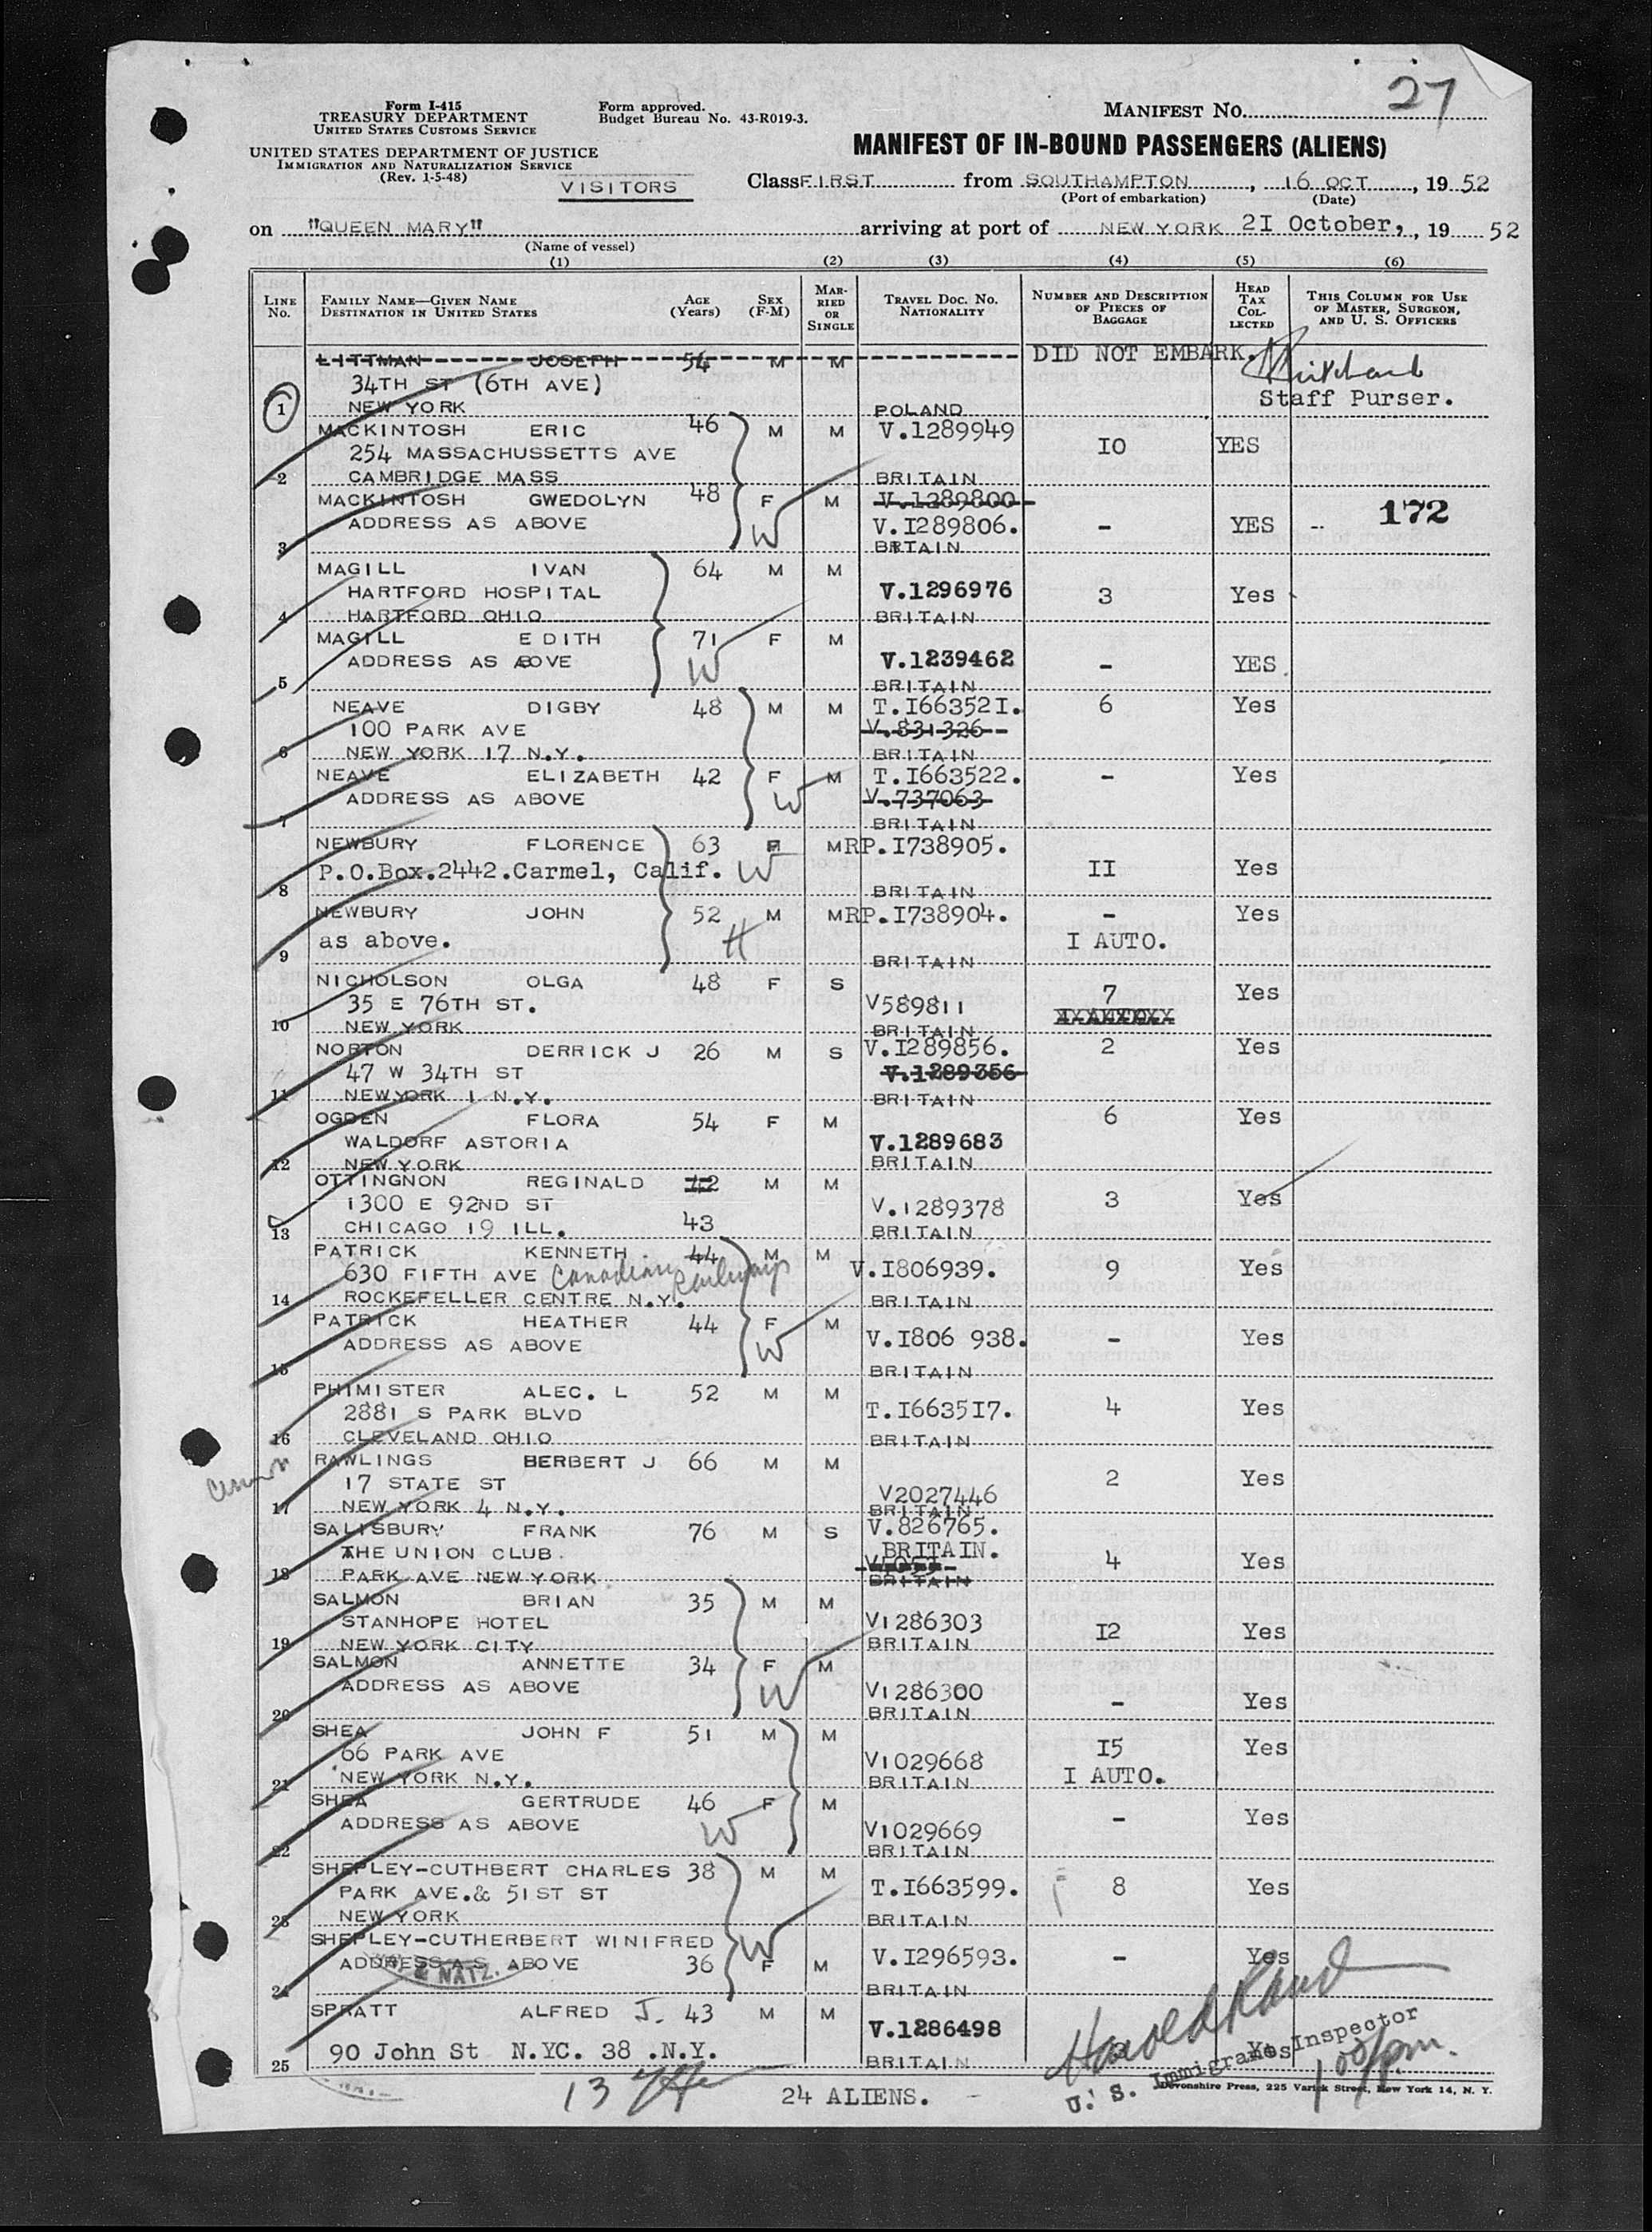 27
Form I-415
TREASURY DEPARTMENT
UNITED STATES CUSTOMS SERVICE
Form approved.
Budget Bureau No. 43-R019-3.
MANIFEST No.
UNITED STATES DEPARTMENT OF JUSTICE
IMMIGRATION AND NATURALIZATION SERVICE
(Rev. 1-5-48)
MANIFEST OF IN-BOUND PASSENGERS (ALIENS)
VISITORS
Class FIRST from SOUTHAMPTON, 16 OCT, 19 52
(Port of embarkation) (Date)
on "QUEEN MARY" arriving at port of NEW YORK 2I October, , 19 52
(Name of vessel)
(1) (2) (3) (4) (5) (6)
LINE No. FAMILY NAME—GIVEN NAME DESTINATION IN UNITED STATES AGE (Years) SEX (F-M) MARRIED OR SINGLE TRAVEL DOC. NO. NATIONALITY NUMBER AND DESCRIPTION OF PIECES OF BAGGAGE HEAD TAX COLLECTED THIS COLUMN FOR USE OF MASTER, SURGEON, AND U. S. OFFICERS
LITTMAN JOSEPH 54 M M DID NOT EMBARK.
34TH ST (6TH AVE)
Staff Purser.
1 NEW YORK POLAND
MACKINTOSH ERIC 46 M M V.1289949
254 MASSACHUSSETTS AVE IO YES
2 CAMBRIDGE MASS BRITAIN
MACKINTOSH GWEDOLYN 48 F M V.1289800
ADDRESS AS ABOVE W V.I289806. - YES 172
3 BRTAIN
MAGILL IVAN 64 M M
HARTFORD HOSPITAL V.1296976 3 Yes
4 HARTFORD OHIO BRITAIN
MAGILL EDITH 71 F M
ADDRESS AS ABOVE W V.1239462 - YES
5 BRITAIN
NEAVE DIGBY 48 M M T.I66352I. 6 Yes
100 PARK AVE V.831326
6 NEW YORK 17 N.Y. BRITAIN
NEAVE ELIZABETH 42 F M T.I663522. - Yes
ADDRESS AS ABOVE W V.737063
7 BRITAIN
NEWBURY FLORENCE 63 F M RP.I738905.
P.O.Box.2442.Carmel, Calif. W II Yes
8 BRITAIN
NEWBURY JOHN 52 M M RP.I738904. - Yes
as above. H I AUTO.
9 BRITAIN
NICHOLSON OLGA 48 F S 7 Yes
35 E 76TH ST. V589811
10 NEW YORK BRITAIN
NORTON DERRICK J 26 M S V.I289856. 2 Yes
47 W 34TH ST V.1289356
11 NEW YORK 1 N.Y. BRITAIN
OGDEN FLORA 54 F M 6 Yes
WALDORF ASTORIA V.1289683
12 NEW YORK BRITAIN
OTTINGNON REGINALD 42 M M
1300 E 92ND ST V.1289378 3 Yes
13 CHICAGO 19 ILL. 43 BRITAIN
PATRICK KENNETH 44 M M
630 FIFTH AVE Canadian Railways V.I806939. 9 Yes
14 ROCKEFELLER CENTRE N.Y. BRITAIN
PATRICK HEATHER 44 F M
ADDRESS AS ABOVE W V.I806 938. - Yes
15 BRITAIN
PHIMISTER ALEC. L 52 M M
2881 S PARK BLVD T.I6635I7. 4 Yes
16 CLEVELAND OHIO BRITAIN
RAWLINGS BERBERT J 66 M M
17 STATE ST V2027446 2 Yes
17 NEW YORK 4 N.Y. BRITAIN
SALISBURY FRANK 76 M S V.826765.
THE UNION CLUB. BRITAIN. 4 Yes
18 PARK AVE NEW YORK BRITAIN
SALMON BRIAN 35 M M
STANHOPE HOTEL V1286303 I2 Yes
19 NEW YORK CITY BRITAIN
SALMON ANNETTE 34 F M
ADDRESS AS ABOVE W V1286300 - Yes
20 BRITAIN
SHEA JOHN F 51 M M
66 PARK AVE V1029668 I5 Yes
21 NEW YORK N.Y. BRITAIN I AUTO.
SHEA GERTRUDE 46 F M
ADDRESS AS ABOVE W V1029669 - Yes
22 BRITAIN
SHEPLEY-CUTHBERT CHARLES 38 M M
PARK AVE.& 51ST ST T.I663599. 8 Yes
23 NEW YORK BRITAIN
SHEPLEY-CUTHERBERT WINIFRED W V.I296593. - Yes
ADDRESS AS ABOVE 36 F M
& NATZ.
24 BRITAIN
SPRATT ALFRED J. 43 M M
V.1286498
90 John St N.YC. 38 .N.Y. Yes
25 BRITAIN
Harold Rand
U. S. Immigrant Inspector
1 00/pm.
13
24 ALIENS.
Devonshire Press, 225 Varick Street, New York 14, N. Y.